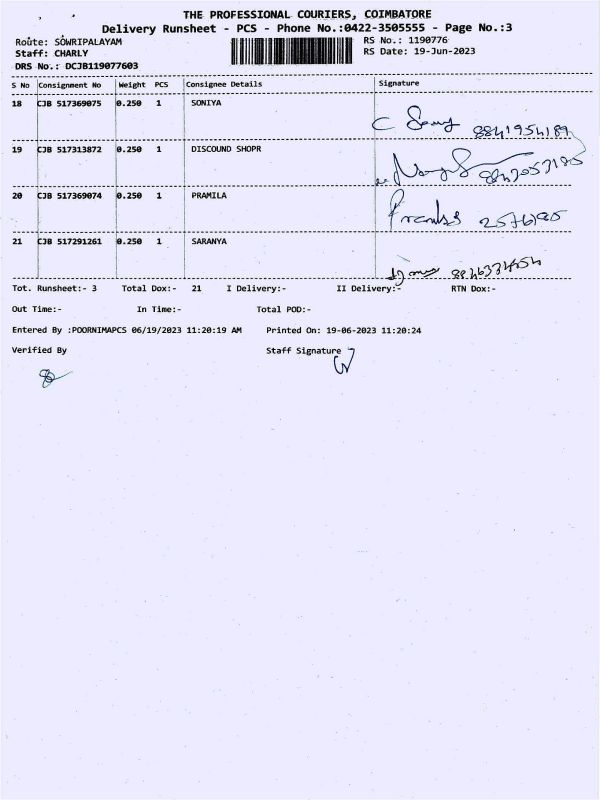 THE PROFESSIONAL COURIERS, COIMBATORE
Delivery Runsheet - PCS - Phone No.:0422-3505555 - Page No.:3
Route: SOWRIPALAYAM RS No.: 1190776
Staff: CHARLY RS Date: 19-Jun-2023
DRS No.: DCJB119077603
S No Consignment No Weight PCS Consignee Details Signature
18 CJB 517369075 0.250 1 SONIYA
19 CJB 517313872 0.250 1 DISCOUND SHOPR
20 CJB 517369074 0.250 1 PRAMILA
21 CJB 517291261 0.250 1 SARANYA
Tot. Runsheet:- 3 Total Dox:- 21 I Delivery:- II Delivery:- RTN Dox:-
Out Time:- In Time:- Total POD:-
Entered By :POORNIMAPCS 06/19/2023 11:20:19 AM Printed On: 19-06-2023 11:20:24
Verified By Staff Signature